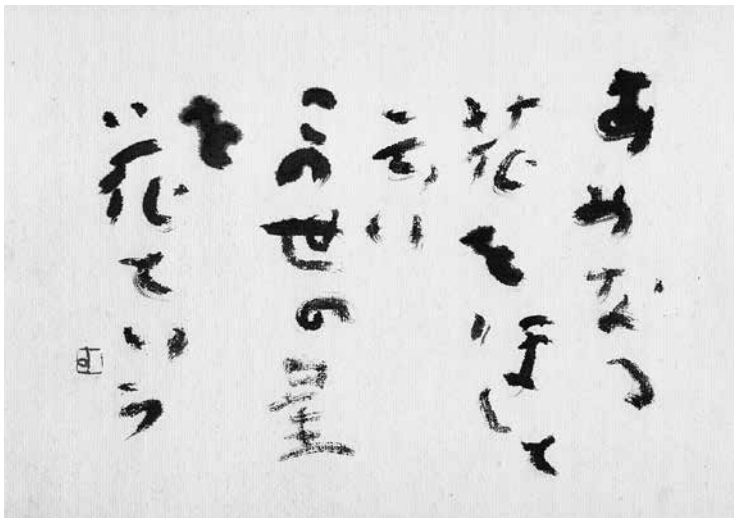 あめなる
花をほしと
云い
この世の星
を
花という